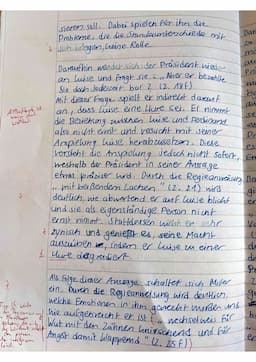 sieren soll. Dabei spielen für ihn die
Probleme, die die Standesunterschiede mit
sich bringen, keine Rolle.
Daraufhin wendet sich der Präsident wieder
an Luise und fragt sie: „Aber er bezahlte
Sie doch jederzeit bar? (Z. 18f)
Mit dieser Frage spielt er indirekt darauf
an, dass Luise eine Hure sei. Er nimmt
die Beziehung zwischen Luise und Ferdinand
also nicht ernst und versucht mit seiner
Anspielung Luise herabzusetzen. Diese
versteht die Anspielung jedoch nicht sofort,
weshalb der Präsident in seiner Aussage
etwas präziser wird. Durch die Regieanweisung
„mit beißendem Lachen" (Z. 21) wird
deutlich, wie abwertend er auf Luise blickt
und sie als eigenständige Person nicht
ernst nimmt. Stattdessen wirkt er sehr
zynisch und genießt es, seine Macht
auszuüben, indem er Luise zu einer
Hure degradiert.
Als Folge dieser Aussage schaltet sich Miller
ein. Durch die Regieanweisung wird deutlich,
welche Emotionen in ihm geweckt wurden und
wie aufgebracht er ist: „wechselweis für
Wut mit den Zähnen knirschend und für
Angst damit klappernd" (Z. 25f)